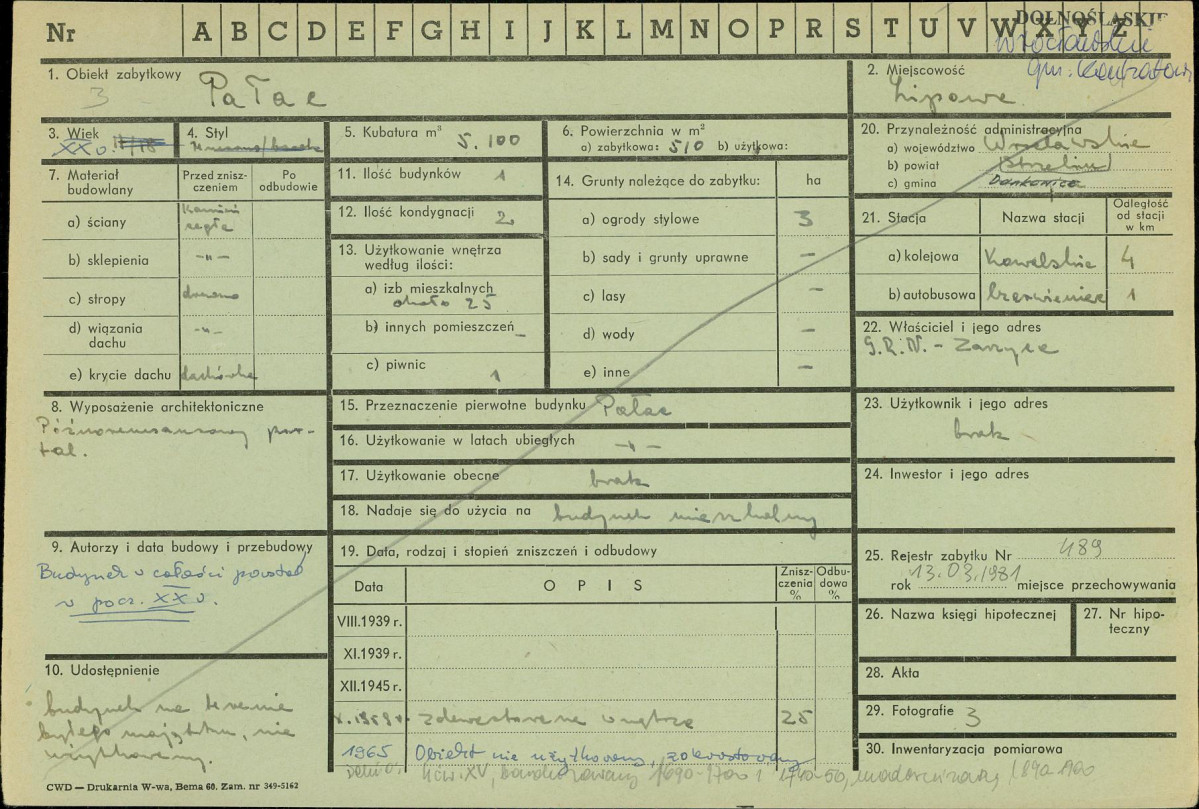 Nr A B C D E F G H I J K L M N O P R S T U V W X Y Z
DOLNOŚLĄSKIE
wrocławskie
gm.
1. Obiekt zabytkowy
3 Pałac
2. Miejscowość
Lipowe
3. Wiek
XX w.
4. Styl
5. Kubatura m³ 5.100
6. Powierzchnia w m²
a) zabytkowa: 510 b) użytkowa:
20. Przynależność administracyjna
a) województwo Wrocławskie
b) powiat Strzelin
c) gmina Dankowice
7. Materiał budowlany
Przed zniszczeniem
Po odbudowie
a) ściany Kamień cegła
b) sklepienia -„-
c) stropy drewno
d) wiązania dachu -„-
e) krycie dachu dachówka
11. Ilość budynków 1
12. Ilość kondygnacji 2
13. Użytkowanie wnętrza według ilości:
a) izb mieszkalnych
około 25
b) innych pomieszczeń –
c) piwnic 1
14. Grunty należące do zabytku: ha
a) ogrody stylowe 3
b) sady i grunty uprawne –
c) lasy –
d) wody –
e) inne –
21. Stacja Nazwa stacji Odległość od stacji w km
a) kolejowa 4
b) autobusowa 1
22. Właściciel i jego adres
G.R.N. - Zarzyca
8. Wyposażenie architektoniczne
Późnorenesansowy por-
tal.
15. Przeznaczenie pierwotne budynku Pałac
16. Użytkowanie w latach ubiegłych -„-
17. Użytkowanie obecne brak
18. Nadaje się do użycia na budynek mieszkalny
23. Użytkownik i jego adres
brak
24. Inwestor i jego adres
9. Autorzy i data budowy i przebudowy
Budynek w całości powstał
w pocz. XX w.
19. Data, rodzaj i stopień zniszczeń i odbudowy
Data OPIS Zniszczenia % Odbudowa %
VIII.1939 r.
XI.1939 r.
XII.1945 r.
X.1959 r. zdewastowane wnętrze 25
1965 Obiekt nie użytkowany, zdewastowany
XV, 1690-1700 i 1740-50, 1890-1900
25. Rejestr zabytku Nr 489
rok 13.03.1981 miejsce przechowywania
26. Nazwa księgi hipotecznej
27. Nr hipoteczny
10. Udostępnienie
budynek na terenie
byłego majątku, nie
użytkowany.
28. Akta
29. Fotografie 3
30. Inwentaryzacja pomiarowa
CWD — Drukarnia W-wa, Bema 60. Zam. nr 349-5162